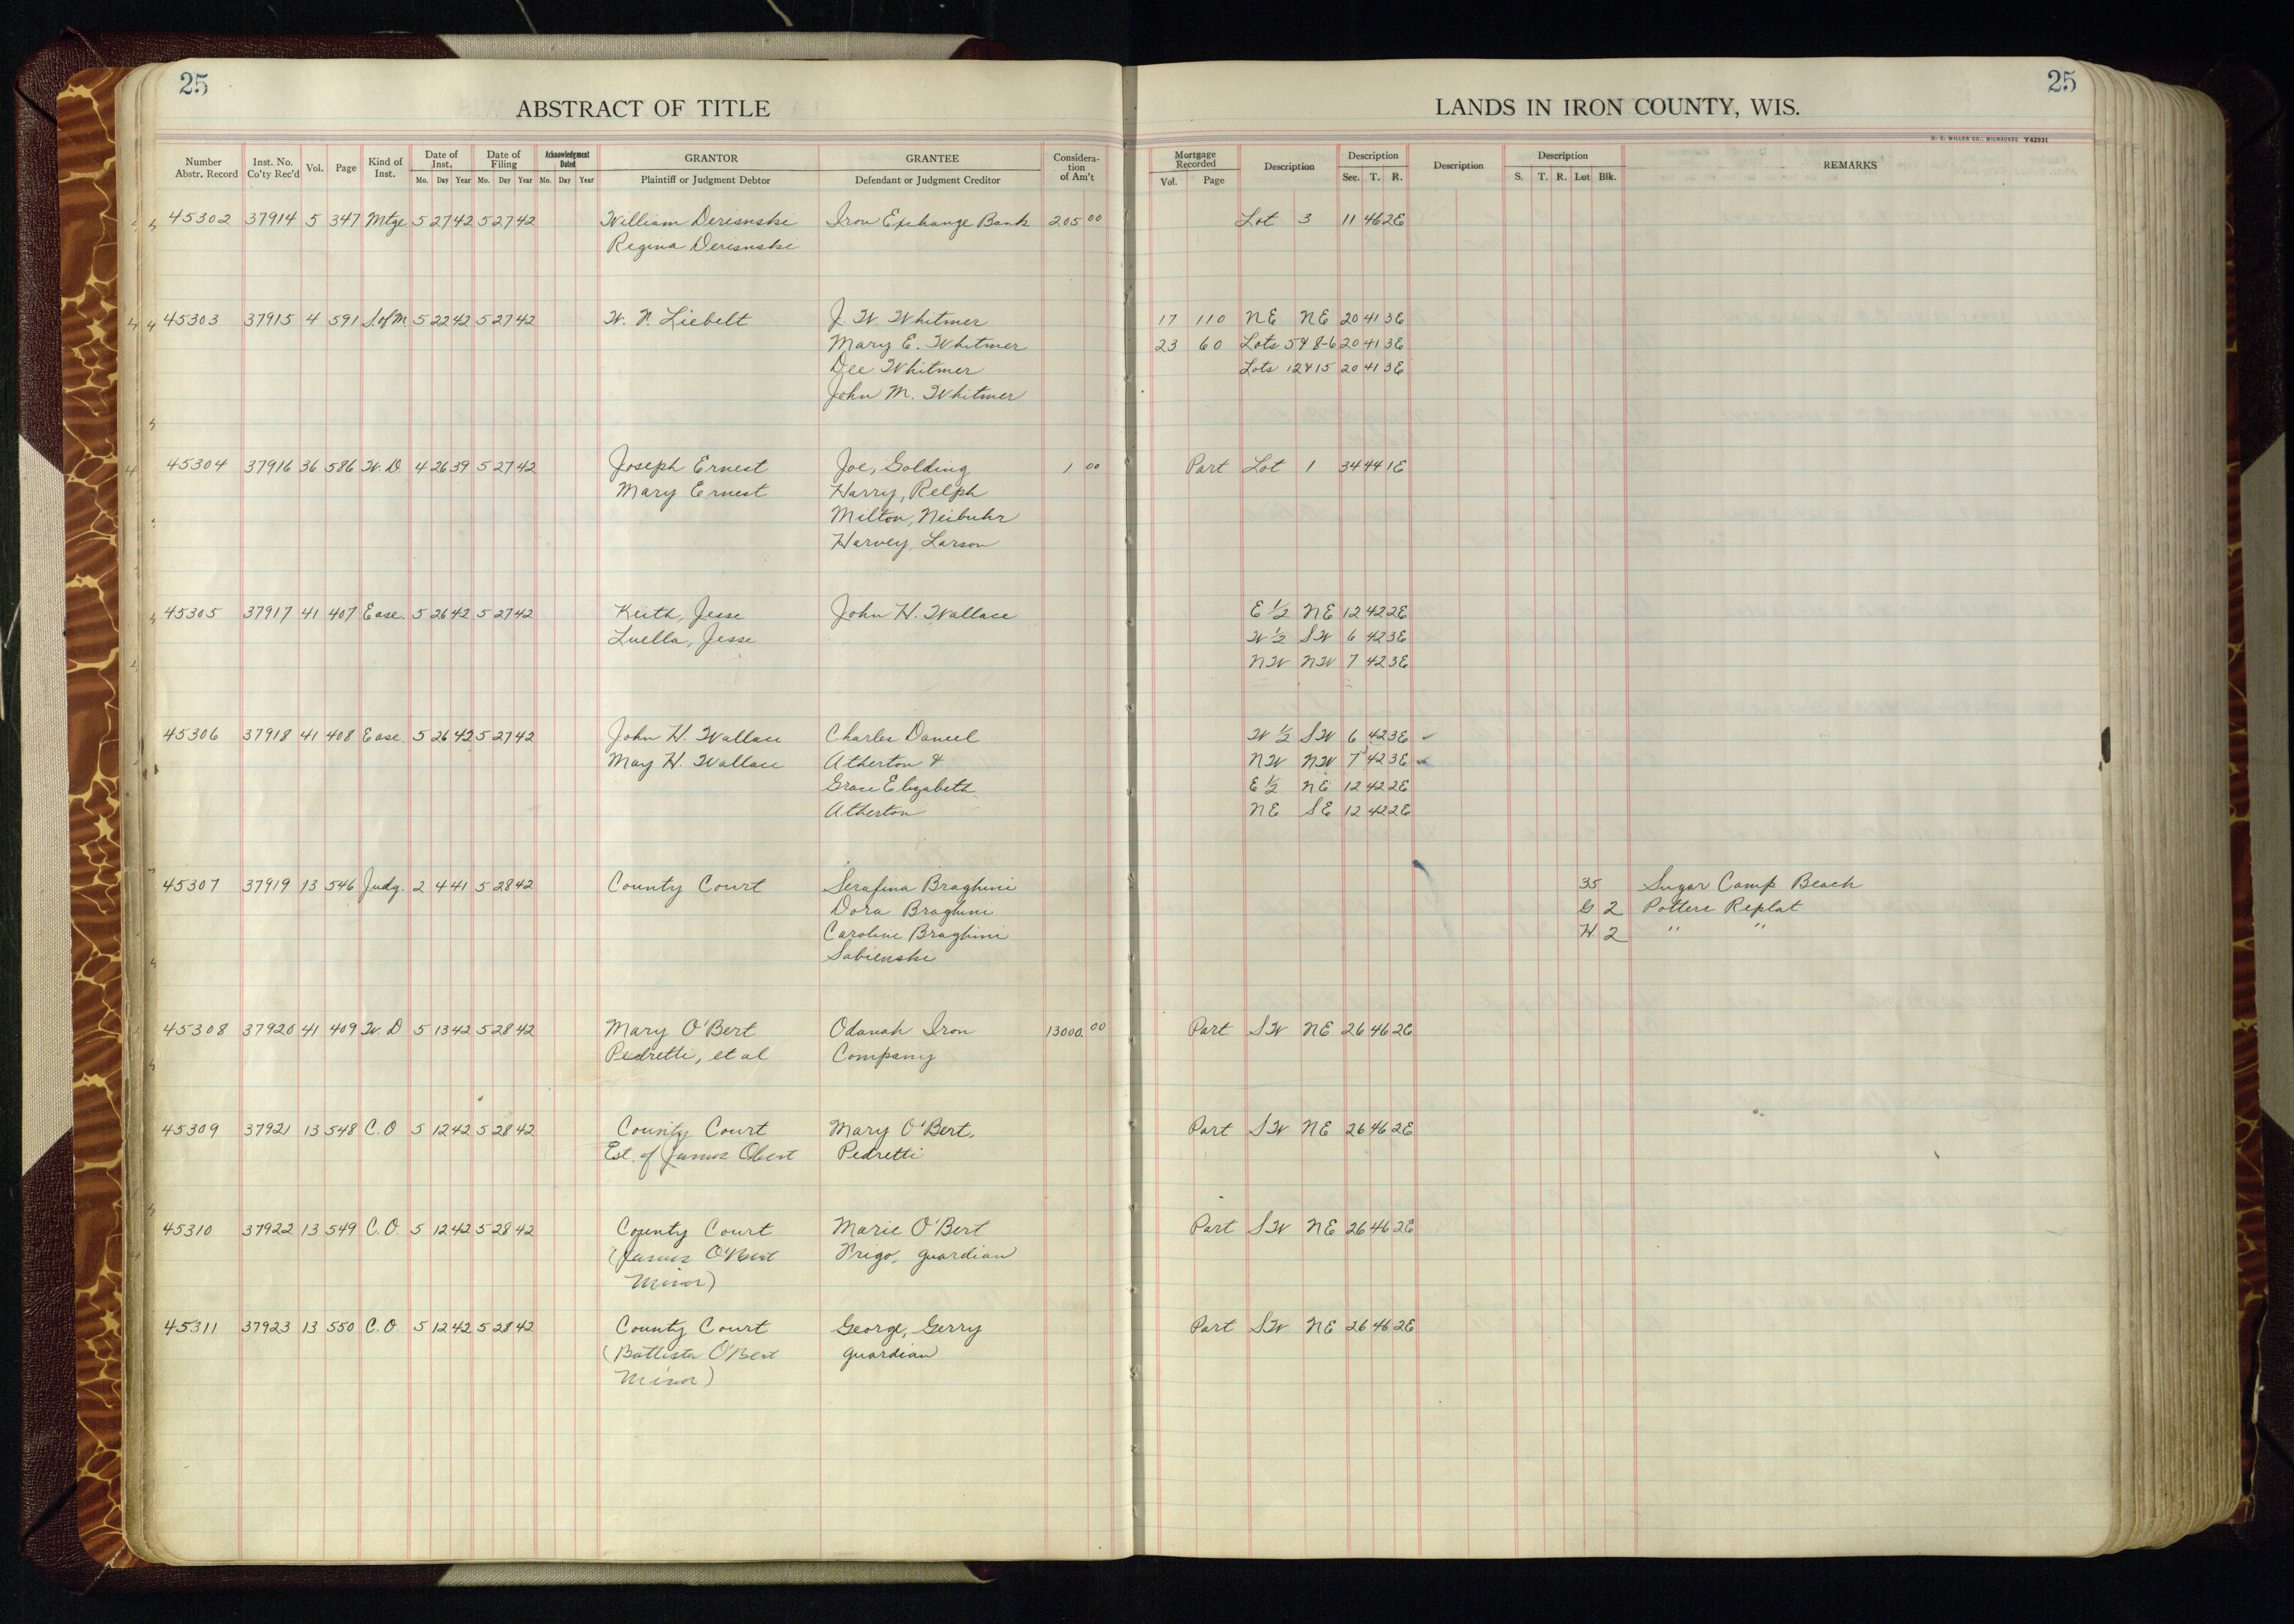 25
25
ABSTRACT OF TITLE
LANDS IN IRON COUNTY, WIS.
H. C. MILLER CO., MILWAUKEE Y42931
Number Abstr. Record Inst. No. Co'ty Rec'd Vol. Page Kind of Inst. Date of Inst. Mo. Day Year Date of Filing Mo. Day Year Acknowledgment Dated Mo. Day Year GRANTOR Plaintiff or Judgment Debtor GRANTEE Defendant or Judgment Creditor Consideration of Am't Mortgage Recorded Vol. Page Description Description Sec. T. R. Description Description S. T. R. Lot Blk. REMARKS
45302 37914 5 347 Mtge 5 27 42 5 27 42 William Derisnski Iron Exchange Bank 205 00 Lot 3 11 46 2E
Regina Derisnski
45303 37915 4 591 S.of M 5 22 42 5 27 42 W. P. Liebelt J. W. Whitmer 17 110 NE NE 20 41 3E
Mary E. Whitmer 23 60 Lots 5 & 8-6 20 41 3E
Dee Whitmer Lots 12 & 15 20 41 3E
John M. Whitmer
45304 37916 36 586 W. D 4 26 39 5 27 42 Joseph Ernest Joe, Golding 1 00 Part Lot 1 34 44 1E
Mary Ernest Harry, Relph
Milton, Neibuhr
Harvey, Larson
45305 37917 41 407 Ease. 5 26 42 5 27 42 Keith, Jesse John H. Wallace E ½ NE 12 42 2E
Luella, Jesse W ½ SW 6 42 3E
NW NW 7 42 3E
45306 37918 41 408 Ease. 5 26 42 5 27 42 John H. Wallace Charles Daniel W ½ SW 6 42 3E ✓
May H. Wallace Atherton & NW NW 7 42 3E ✓
Grace Elizabeth E ½ NE 12 42 2E
Atherton NE SE 12 42 2E
45307 37919 13 546 Judg. 2 4 41 5 28 42 County Court Serafina Braghini 35 Sugar Camp Beach
Dora Braghini G 2 Potters Replat
Caroline Braghini H 2 " "
Sabienski
45308 37920 41 409 W. D 5 13 42 5 28 42 Mary O'Bert Odanah Iron 13000 00 Part SW NE 26 46 2E
Pedretti, et al Company
45309 37921 13 548 C. O 5 12 42 5 28 42 County Court Mary O'Bert, Part SW NE 26 46 2E
Est. of James Obert Pedretti
45310 37922 13 549 C. O. 5 12 42 5 28 42 County Court Marie O'Bert Part SW NE 26 46 2E
(James O'Bert Prigo, guardian
Minor)
45311 37923 13 550 C. O 5 12 42 5 28 42 County Court George, Gerry Part SW NE 26 46 2E
(Battista O'Bert guardian
Minor)